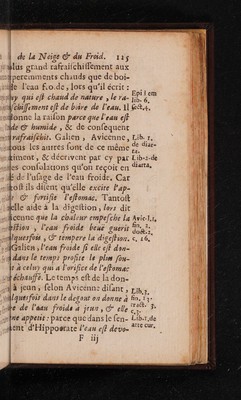 de la Neige & du Froid. 115
plus grand rafraischissement aux
temperemments chauds que de boi-
l'eau froide, lors qu'il écrit:
luy qui est chaud de nature, le ra-
schissement est de boire de l'eau. Il
donne la raison parce que l'eau est
de & humide, & de consequent
rafraischit. Galien, Avicenne,
tous les autres sont de ce même
timent, & décrivent par cy par
les consolations qu'on reçoit en
té de l'usage de l'eau froide. Car
tost ils disent qu'elle excite l'ap-
& fortifie l'estomac. Tantost
elle aide à la digestion, lors dit
cenne que la chaleur empesche la
stion, l'eau froide beuë guerit
lquefois, & tempere la digestion.
Galien, l'eau froide si elle est don-
dans le temps profite le plus sou-
à celuy qui a l'orifice de l'estomac
échauffé. Le temps est de la don-
à jeun, selon Avicenne disant,
lquefois dans le degoust on donne à
de l'eau froide à jeun, & elle
ne appetit: parce que dans le sen-
ent d'Hippocrate l'eau est devo-
F iij
Epi lem
lib. 6.
sect. 4.
Lib. 1.
de diæ-
ta.
Lib. 2. de
diæta.
Avic. l. 1.
fin. 2.
doct. 2.
c. 16.
Lib. 3.
fin. 13.
tract. 3.
c. 7.
Lib. 1. de
arte cur.